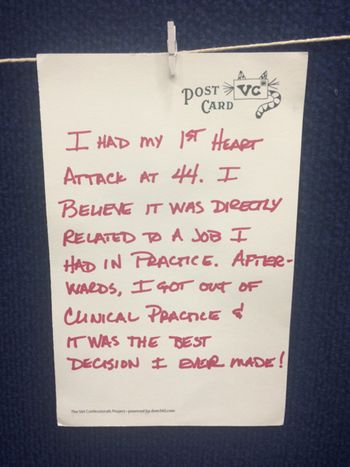 POST VC
CARD
I HAD MY 1ST HEART
ATTACK AT 44. I
BELIEVE IT WAS DIRECTLY
RELATED TO A JOB I
HAD IN PRACTICE. AFTER-
WARDS, I GOT OUT OF
CLINICAL PRACTICE &
IT WAS THE BEST
DECISION I EVER MADE!
The Vet Confessionals Project - powered by dvm360.com